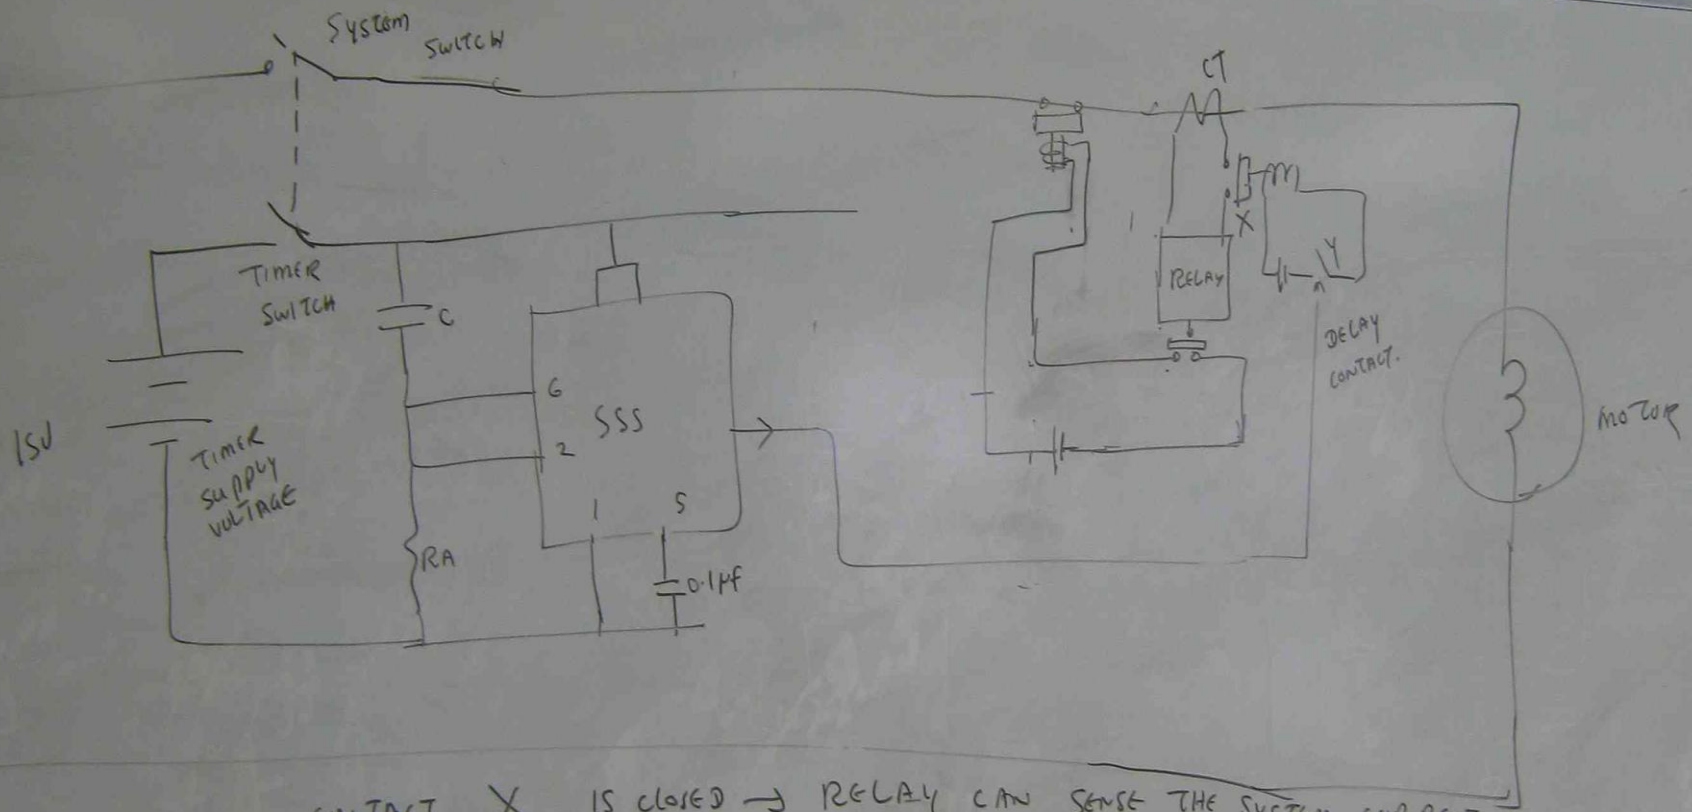 SYSTEM
SWITCH
CT
TIMER
SWITCH
C
X
Y
RELAY
DELAY
CONTACT.
6
555
2
15V
TIMER
SUPPLY
VOLTAGE
MOTOR
1 5
RA
0.1μf
X IS CLOSED → RELAY CAN SENSE THE SYSTEM